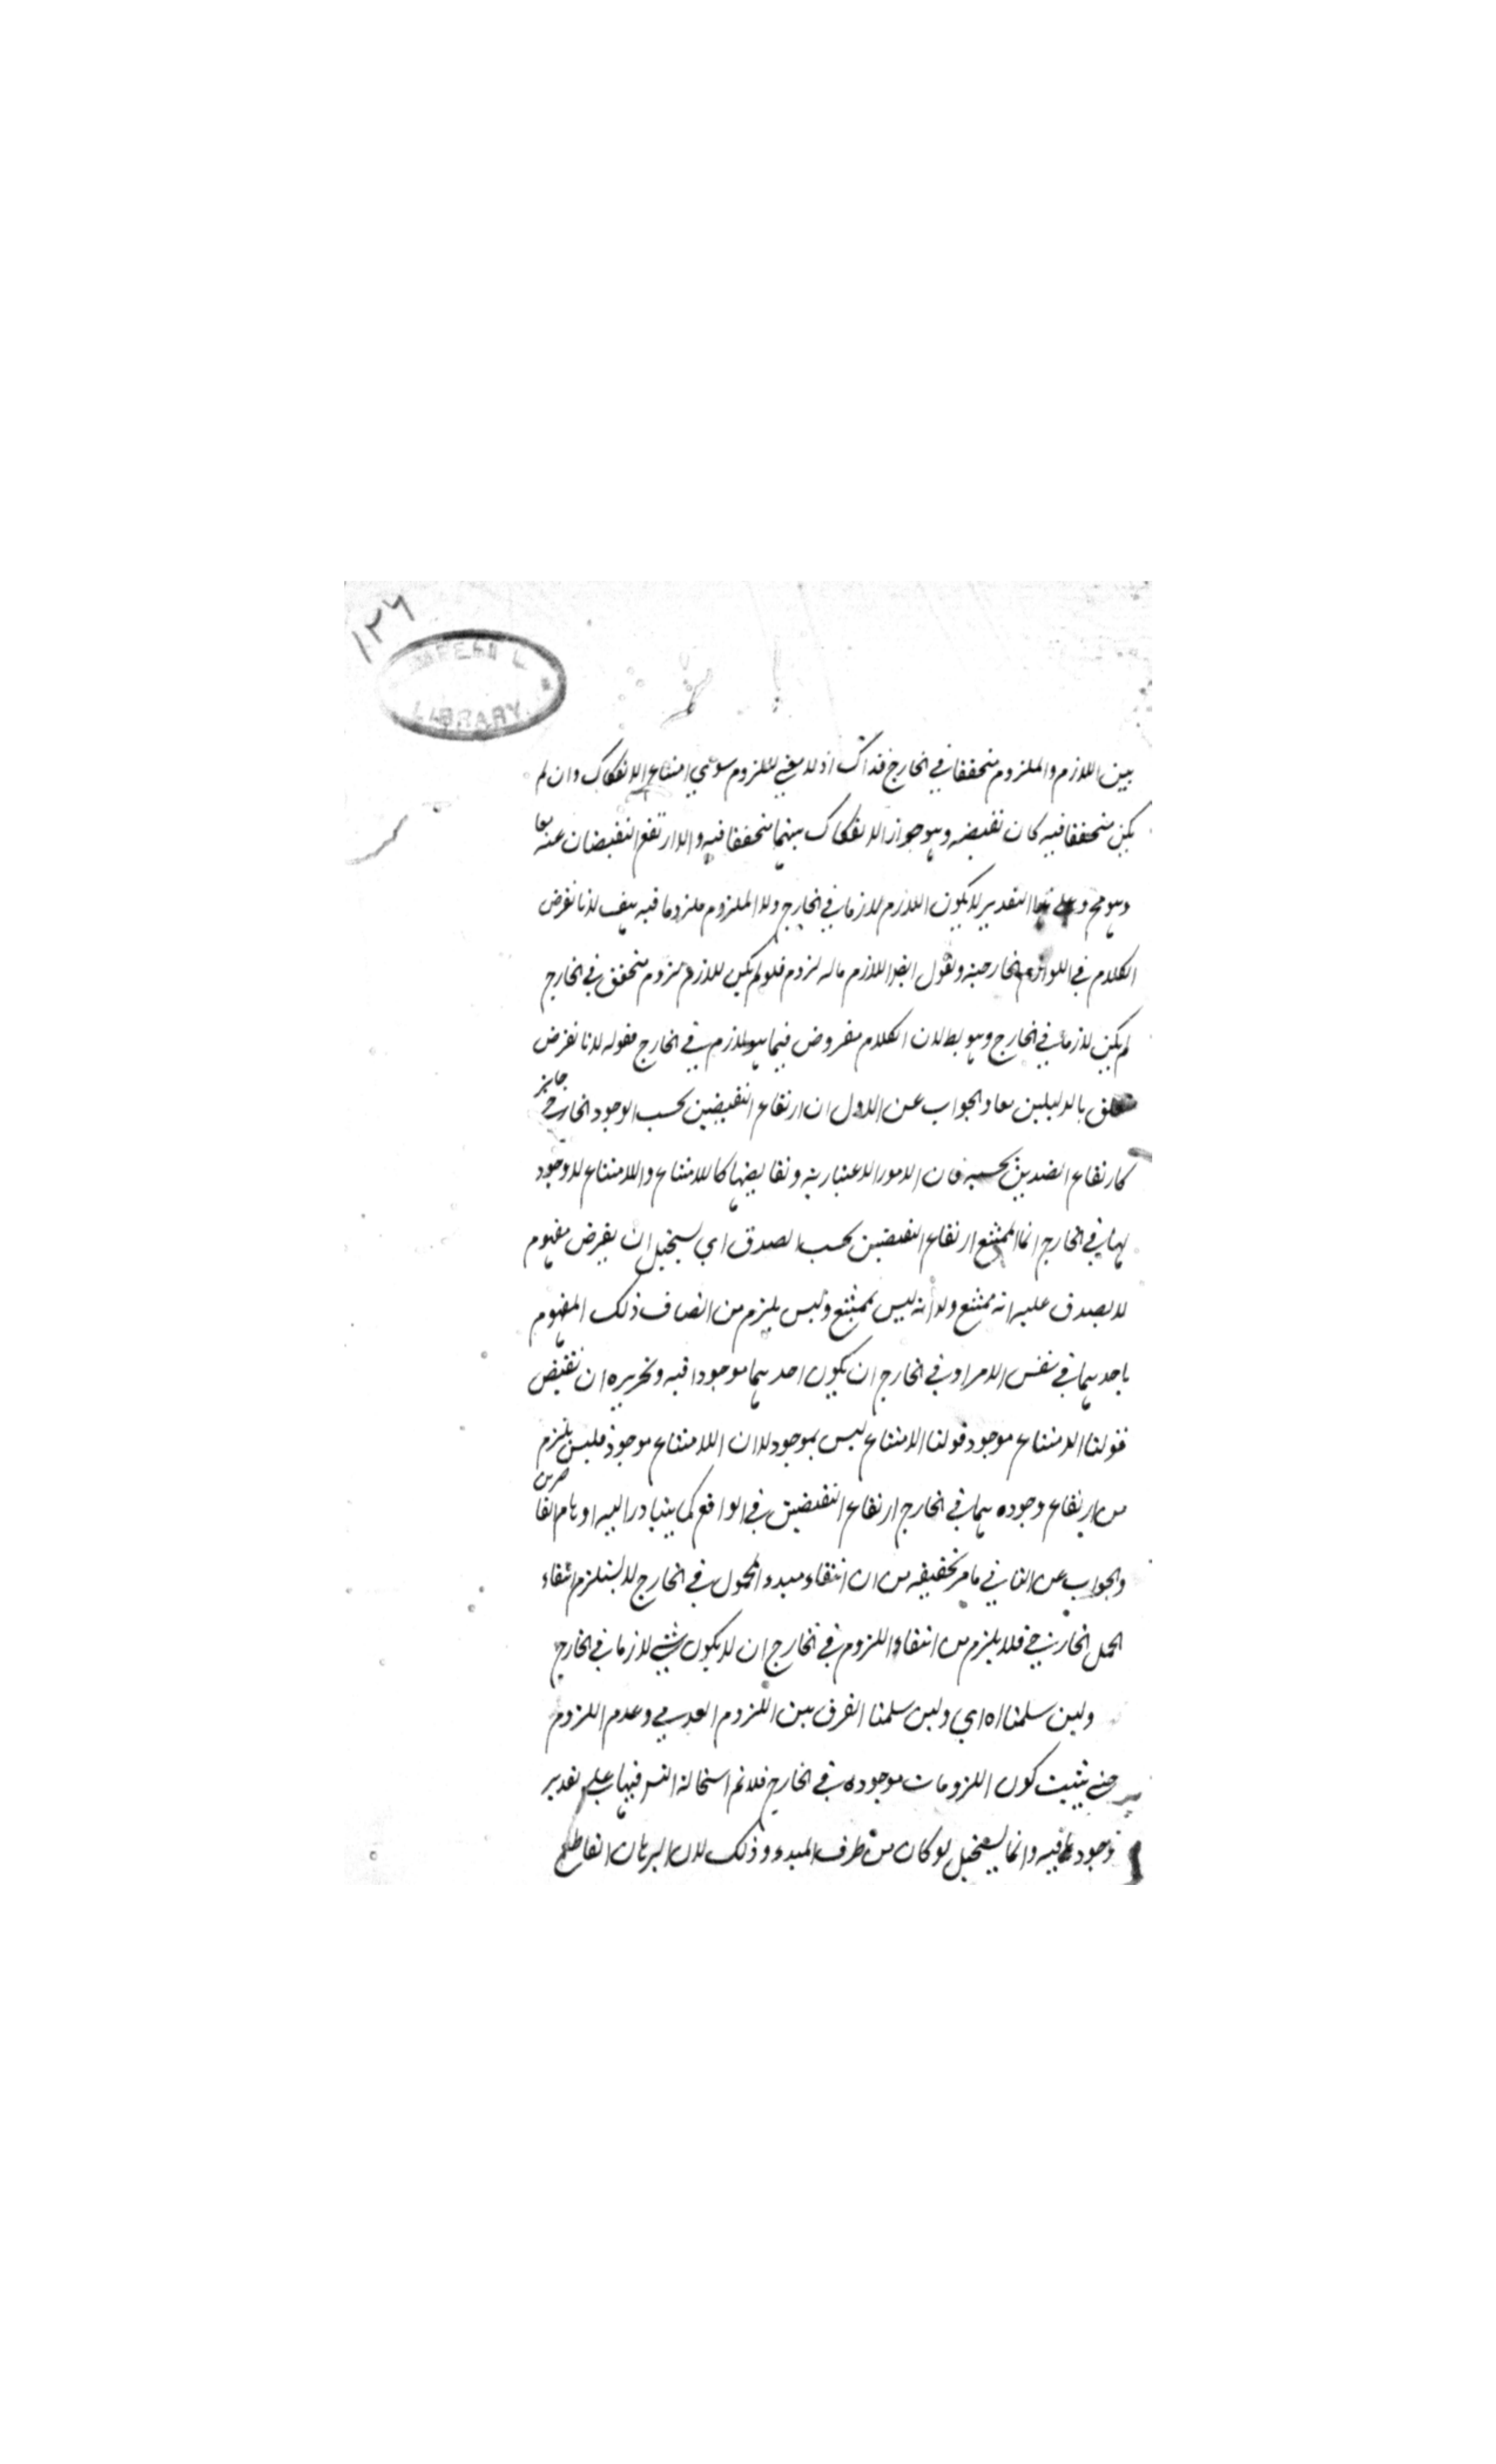 ١٢٦
IMPERIAL LIBRARY
بين اللازم والملزوم متحققا في الخارج فذاك اذ لا معني للزوم سوي امتناع الانفكاك وان لم
يكن متحققا فيه كان نقيضه وهو جواز الانفكاك بينهما متحققا فيه والا ارتفع النقيضان عنه معا
وهو مح وعلي هذا التقدير لا يكون اللازم لازما في الخارج ولا الملزوم ملزوما فيه هف لانا نفرض
الكلام في اللوازم الخارجية ونقول ايضا اللازم ماله لزوم فلو لم يكن للازم لزوم متحقق في الخارج
لم يكن لازما في الخارج وهو بط لان الكلام مفروض فيما هو لازم في الخارج فقوله لانا نفرض
متعلق بالدليلين معا والجواب عن الاول ان ارتفاع النقيضين بحسب الوجود الخارجي جايز
كارتفاع الضدين بحسبه فان الامور الاعتبارية ونقايضها كالامتناع واللاامتناع لا وجود
لها في الخارج انما الممتنع ارتفاع النقيضين بحسب الصدق اي يستحيل ان يفرض مفهوم
لا يصدق عليه انه ممتنع ولا انه ليس بممتنع وليس يلزم من اتصاف ذلك المفهوم
باحديهما في نفس الامر او في الخارج ان يكون احديهما موجودا فيه وتحريره ان نقيض
قولنا الامتناع موجود قولنا الامتناع ليس بموجود لا ان اللاامتناع موجود فليس يلزم
من ارتفاع وجوديهما في الخارج ارتفاع النقيضين في الواقع كما يتبادر اليه اوهام القاصرين
والجواب عن الثاني ما مر تحقيقه من ان انتفاء مبدء المحمول في الخارج لا يستلزم انتفاء
الحمل الخارجي فلا يلزم من انتفاء اللزوم في الخارج ان لا يكون شيء لازما في الخارج
ولين سلمناه اي ولين سلمنا الفرق بين اللزوم العدمي وعدم اللزوم
حتي يثبت كون اللزومات موجودة في الخارج فلا نم استحالة التس فيها علي تقدير
وجودها فيه وانما يستحيل لو كان من طرف المبدء وذلك لان البرهان القاطع